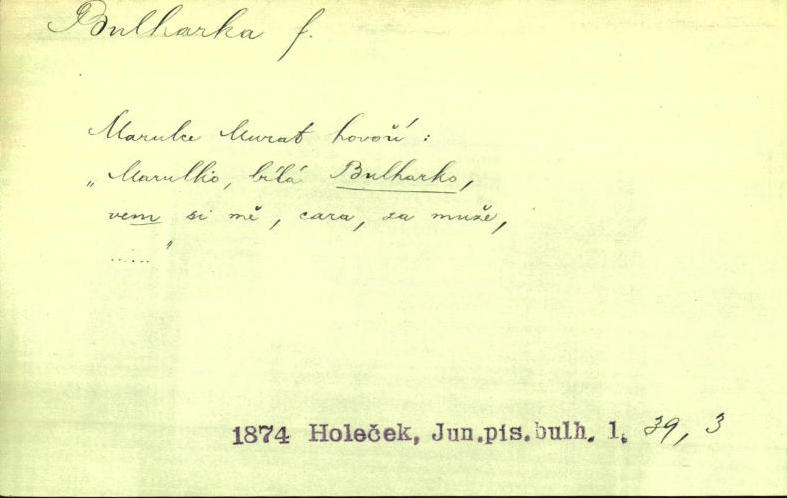 Bulharka f.
Marulce Murat hovoří:
„Marulko, bílá Bulharko,
vem si mě, cara, za muže,
......"
1874 Holeček, Jun.pis.bulh. 1. 39, 3